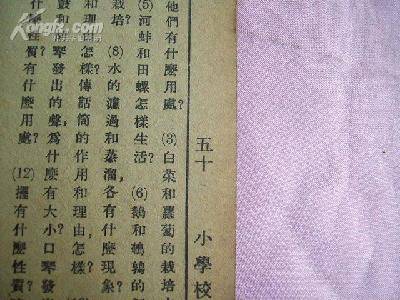 五十 小學校
他們有什麼用處? (3)白菜和蘿蔔的栽培
(5)河蚌和田螺怎樣生活? (6)鵝和鵪鶉的
栽培? (8)水的濾過和蒸溜,各有什麼現象?
和理怎樣?傳話筒的作用和理由,怎樣?
鼓和琴發出的聲,爲什麼有大小?口琴發
什麼性質?有什麼用處? (12)擺有什麼性質